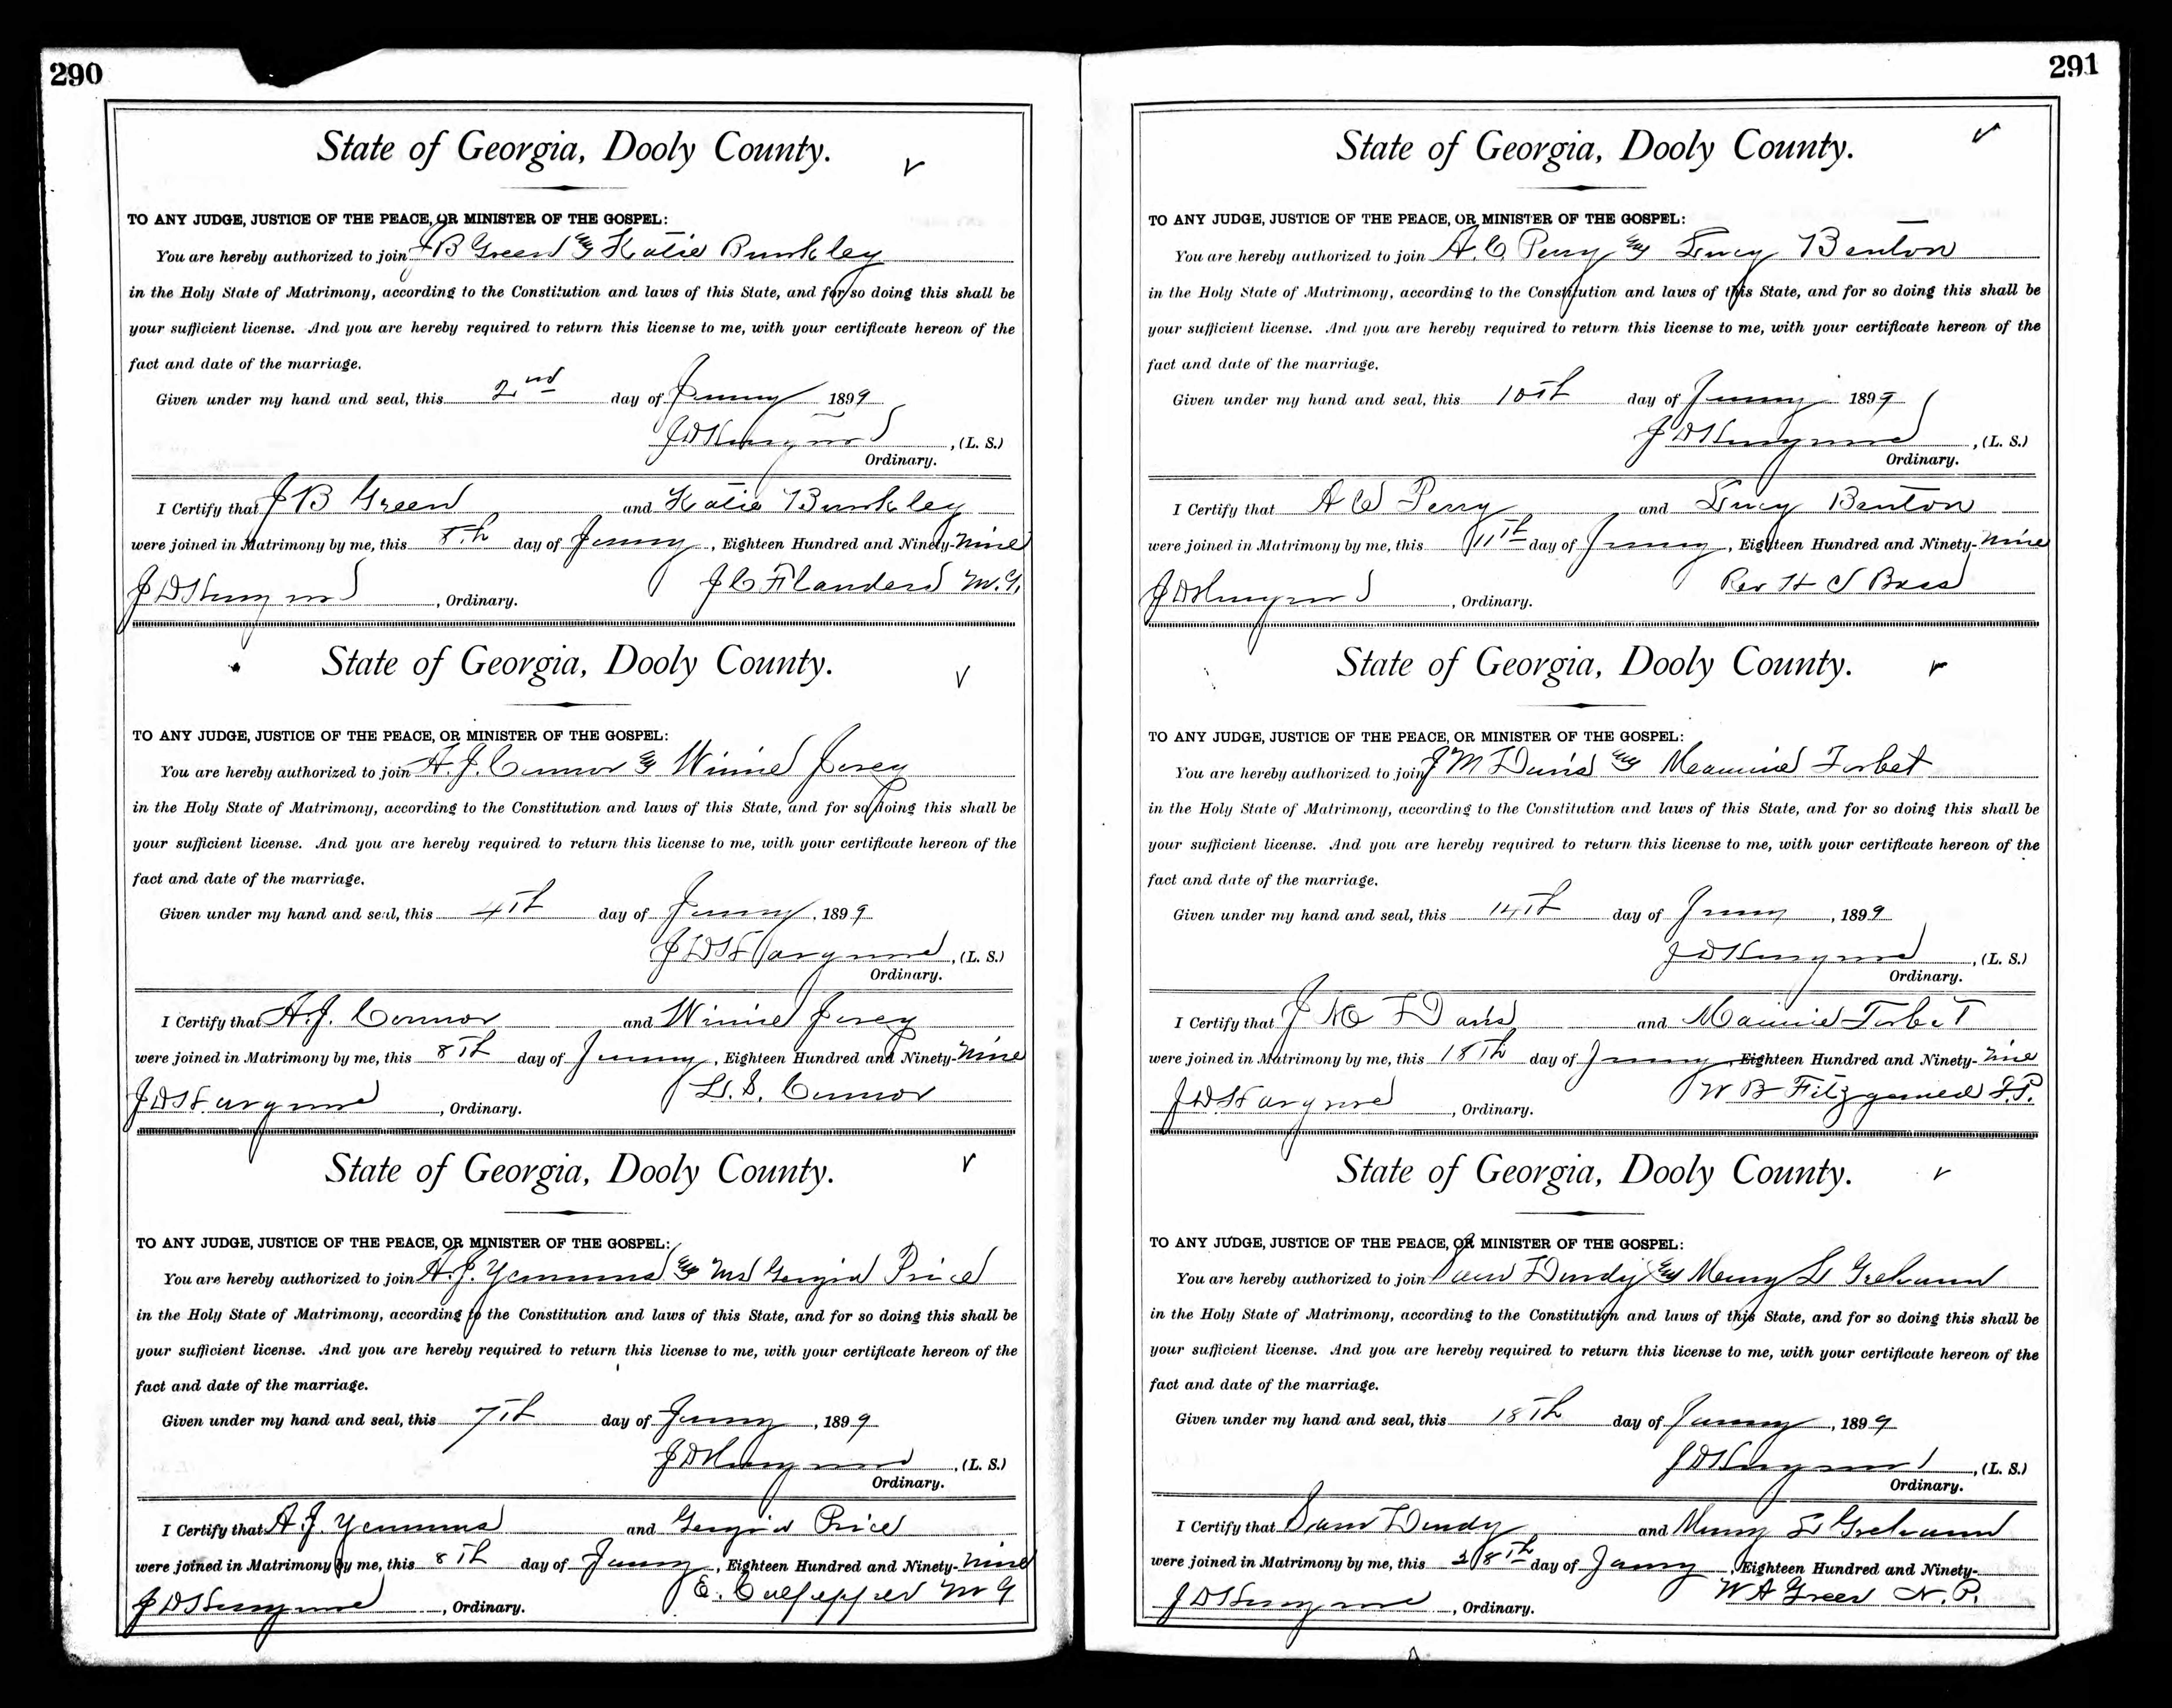 290
State of Georgia, Dooly County.
TO ANY JUDGE, JUSTICE OF THE PEACE, OR MINISTER OF THE GOSPEL:
You are hereby authorized to join J B Green & Katie Bunkley
in the Holy State of Matrimony, according to the Constitution and laws of this State, and for so doing this shall be
your sufficient license. And you are hereby required to return this license to me, with your certificate hereon of the
fact and date of the marriage.
Given under my hand and seal, this 2nd day of 1899
J D , (L. S.)
Ordinary.
I Certify that J B Green and Katie Bunkley
were joined in Matrimony by me, this 8th day of , Eighteen Hundred and Ninety-Nine
J C Flanders M.G.
J D , Ordinary.
State of Georgia, Dooly County.
TO ANY JUDGE, JUSTICE OF THE PEACE, OR MINISTER OF THE GOSPEL:
You are hereby authorized to join A. J. Connor & Winnie
in the Holy State of Matrimony, according to the Constitution and laws of this State, and for so doing this shall be
your sufficient license. And you are hereby required to return this license to me, with your certificate hereon of the
fact and date of the marriage.
Given under my hand and seal, this 4th day of , 1899
J D , (L. S.)
Ordinary.
I Certify that A. J. Connor and Winnie
were joined in Matrimony by me, this 8th day of , Eighteen Hundred and Ninety-Nine
Connor
J D , Ordinary.
State of Georgia, Dooly County.
TO ANY JUDGE, JUSTICE OF THE PEACE, OR MINISTER OF THE GOSPEL:
You are hereby authorized to join A. J. & Price
in the Holy State of Matrimony, according to the Constitution and laws of this State, and for so doing this shall be
your sufficient license. And you are hereby required to return this license to me, with your certificate hereon of the
fact and date of the marriage.
Given under my hand and seal, this 7th day of , 1899
J D , (L. S.)
Ordinary.
I Certify that A. J. and Price
were joined in Matrimony by me, this 8th day of , Eighteen Hundred and Ninety-Nine
E. Culpepper M G
J D , Ordinary.
291
State of Georgia, Dooly County.
TO ANY JUDGE, JUSTICE OF THE PEACE, OR MINISTER OF THE GOSPEL:
You are hereby authorized to join A. C. Perry & Lucy Benton
in the Holy State of Matrimony, according to the Constitution and laws of this State, and for so doing this shall be
your sufficient license. And you are hereby required to return this license to me, with your certificate hereon of the
fact and date of the marriage.
Given under my hand and seal, this 10th day of 1899
J D , (L. S.)
Ordinary.
I Certify that A C Perry and Lucy Benton
were joined in Matrimony by me, this 11th day of , Eighteen Hundred and Ninety-Nine
Rev H S Bass
J D , Ordinary.
State of Georgia, Dooly County.
TO ANY JUDGE, JUSTICE OF THE PEACE, OR MINISTER OF THE GOSPEL:
You are hereby authorized to join J M Davis & Torbet
in the Holy State of Matrimony, according to the Constitution and laws of this State, and for so doing this shall be
your sufficient license. And you are hereby required to return this license to me, with your certificate hereon of the
fact and date of the marriage.
Given under my hand and seal, this 14th day of , 1899
J D , (L. S.)
Ordinary.
I Certify that J M Davis and Torbet
were joined in Matrimony by me, this 18th day of , Eighteen Hundred and Ninety-Nine
W B
J D , Ordinary.
State of Georgia, Dooly County.
TO ANY JUDGE, JUSTICE OF THE PEACE, OR MINISTER OF THE GOSPEL:
You are hereby authorized to join Dendy & L
in the Holy State of Matrimony, according to the Constitution and laws of this State, and for so doing this shall be
your sufficient license. And you are hereby required to return this license to me, with your certificate hereon of the
fact and date of the marriage.
Given under my hand and seal, this 18th day of , 1899
J D , (L. S.)
Ordinary.
I Certify that Sam Dendy and L
were joined in Matrimony by me, this day of , Eighteen Hundred and Ninety-
W A Greer N. P.
J D , Ordinary.